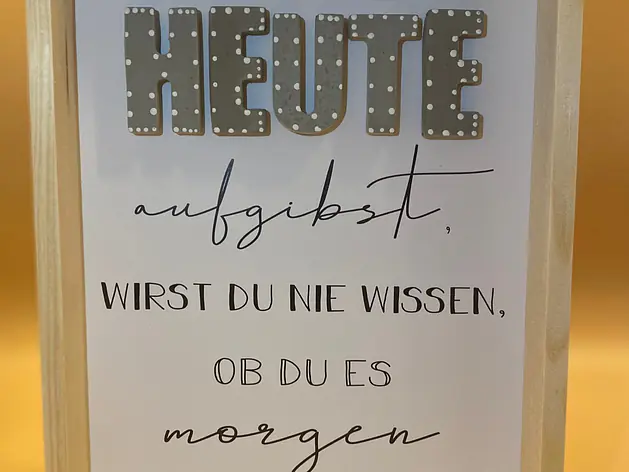 HEUTE
aufgibst,
WIRST DU NIE WISSEN,
OB DU ES
morgen